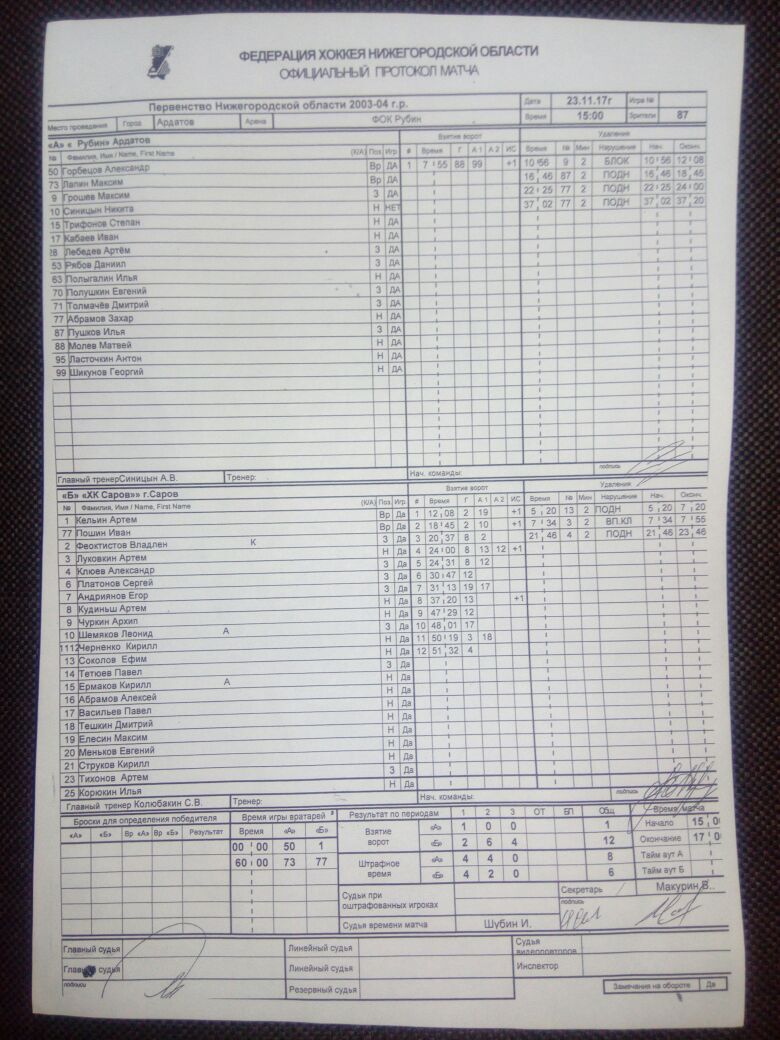 ФЕДЕРАЦИЯ ХОККЕЯ НИЖЕГОРОДСКОЙ ОБЛАСТИ
ОФИЦИАЛЬНЫЙ ПРОТОКОЛ МАТЧА
Первенство Нижегородской области 2003-04 г.р. Дата 23.11.17г Игра №
Место проведения Город Ардатов Арена ФОК Рубин Время 15:00 Зрители 87
«А» « Рубин» Ардатов Взятие ворот Удаления
№ Фамилия, Имя / Name, First Name (К/А) Поз Игр # Время Г А 1 А 2 ИС Время № Мин Нарушение Нач. Оконч.
50 Горбецов Александр Вр ДА 1 7 55 88 99 +1 10 56 9 2 БЛОК 10 56 12 08
73 Лапин Максим Вр ДА 16 46 87 2 ПОДН 16 46 18 45
9 Грошев Максим З ДА 22 25 77 2 ПОДН 22 25 24 00
10 Синицын Никита Н НЕТ 37 02 77 2 ПОДН 37 02 37 20
15 Трифонов Степан Н ДА
17 Кабаев Иван Н ДА
28 Лебедев Артём З ДА
53 Рябов Даниил З ДА
63 Полыгалин Илья Н ДА
70 Полушкин Евгений З ДА
71 Толмачёв Дмитрий З ДА
77 Абрамов Захар Н ДА
87 Пушков Илья З ДА
88 Молев Матвей Н ДА
95 Ласточкин Антон Н ДА
99 Шикунов Георгий Н ДА
Главный тренер Синицын А.В. Тренер: Нач. команды: подпись
«Б» «ХК Саров»» г.Саров Взятие ворот Удаления
№ Фамилия, Имя / Name, First Name (К/А) Поз Игр # Время Г А 1 А 2 ИС Время № Мин Нарушение Нач. Оконч.
1 Кельин Артем Вр Да 1 12 08 2 19 +1 5 20 13 2 ПОДН 5 20 7 20
77 Пошин Иван Вр Да 2 18 45 2 10 +1 7 34 3 2 ВП.КЛ 7 34 7 55
2 Феоктистов Владлен К З Да 3 20 37 8 2 21 46 4 2 ПОДН 21 46 23 46
3 Луковкин Артем Н Да 4 24 00 8 13 12 +1
4 Клюев Александр З Да 5 24 31 8 12
6 Платонов Сергей З Да 6 30 47 12
7 Андриянов Егор З Да 7 31 13 19 17
8 Кудиньш Артем Н Да 8 37 20 13 +1
9 Чуркин Архип Н Да 9 47 29 12
10 Шемяков Леонид А З Да 10 48 01 17
1112 Черненко Кирилл Н Да 11 50 19 3 18
13 Соколов Ефим Н Да 12 51 32 4
14 Тетюев Павел З Да
15 Ермаков Кирилл А Н Да
16 Абрамов Алексей Н Да
17 Васильев Павел Н Да
18 Тешкин Дмитрий Н Да
19 Елесин Максим Н Да
20 Меньков Евгений Н Да
21 Струков Кирилл Н Да
23 Тихонов Артем З Да
25 Корюкин Илья Н Да
Главный тренер Колюбакин С.В. Тренер: Нач. команды: подпись
Броски для определения победителя Время игры вратарей Результат по периодам 1 2 3 ОТ БП Общ Время матча
«А» «Б» Вр «А» Вр «Б» Результат Время «А» «Б» Взятие ворот «А» 1 0 0 1 Начало 15
00 00 50 1 «Б» 2 6 4 12 Окончание 17
60 00 73 77 Штрафное время «А» 4 4 0 8 Тайм аут А
«Б» 4 2 0 6 Тайм аут Б
Судьи при оштрафованных игроках Секретарь Макурин В..
подпись
Судья времени матча Шубин И.
Главный судья Линейный судья Судья видеоповторов
Главный судья Линейный судья Инспектор
подписи Резервный судья Замечания на обороте Да